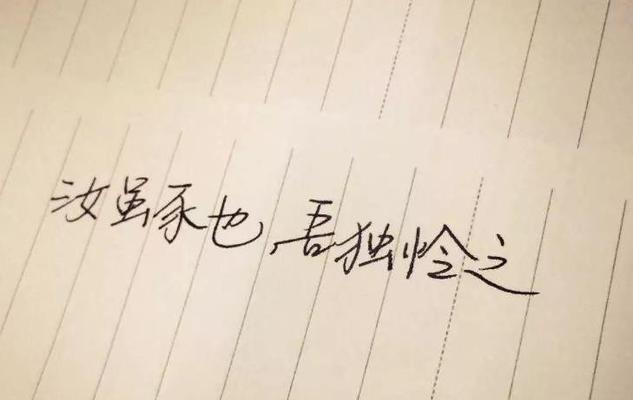 汝虽豕也,吾独怜之